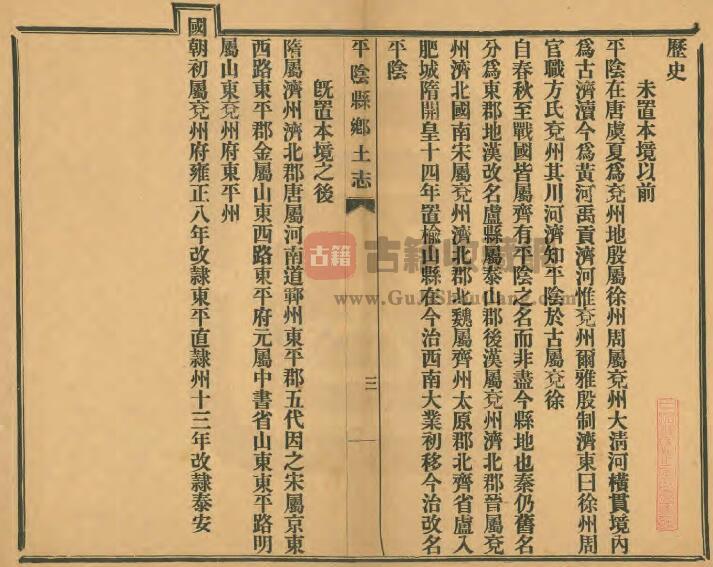 歷史
未置本境以前
平陰在唐虞夏爲兗州地殷屬徐州周屬兗州大淸河橫貫境內
爲古濟瀆今爲黃河禹貢濟河惟兗州爾雅殷制濟東曰徐州周
官職方氏兗州其川河濟知平陰於古屬兗徐
自春秋至戰國皆屬齊有平陰之名而非盡今縣地也秦仍舊名
分爲東郡地漢改名盧縣屬泰山郡後漢屬兗州濟北郡晉屬兗
州濟北國南宋屬兗州濟北郡北魏屬齊州太原郡北齊省盧入
肥城隋開皇十四年置楡山縣在今治西南大業初移今治改名
平陰
平陰縣鄕土志
三
旣置本境之後
隋屬濟州濟北郡唐屬河南道鄆州東平郡五代因之宋屬京東
西路東平郡金屬山東西路東平府元屬中書省山東東平路明
屬山東兗州府東平州
國朝初屬兗州府雍正八年改隸東平直隸州十三年改隸泰安
古籍
www.GuJiShuCang.com